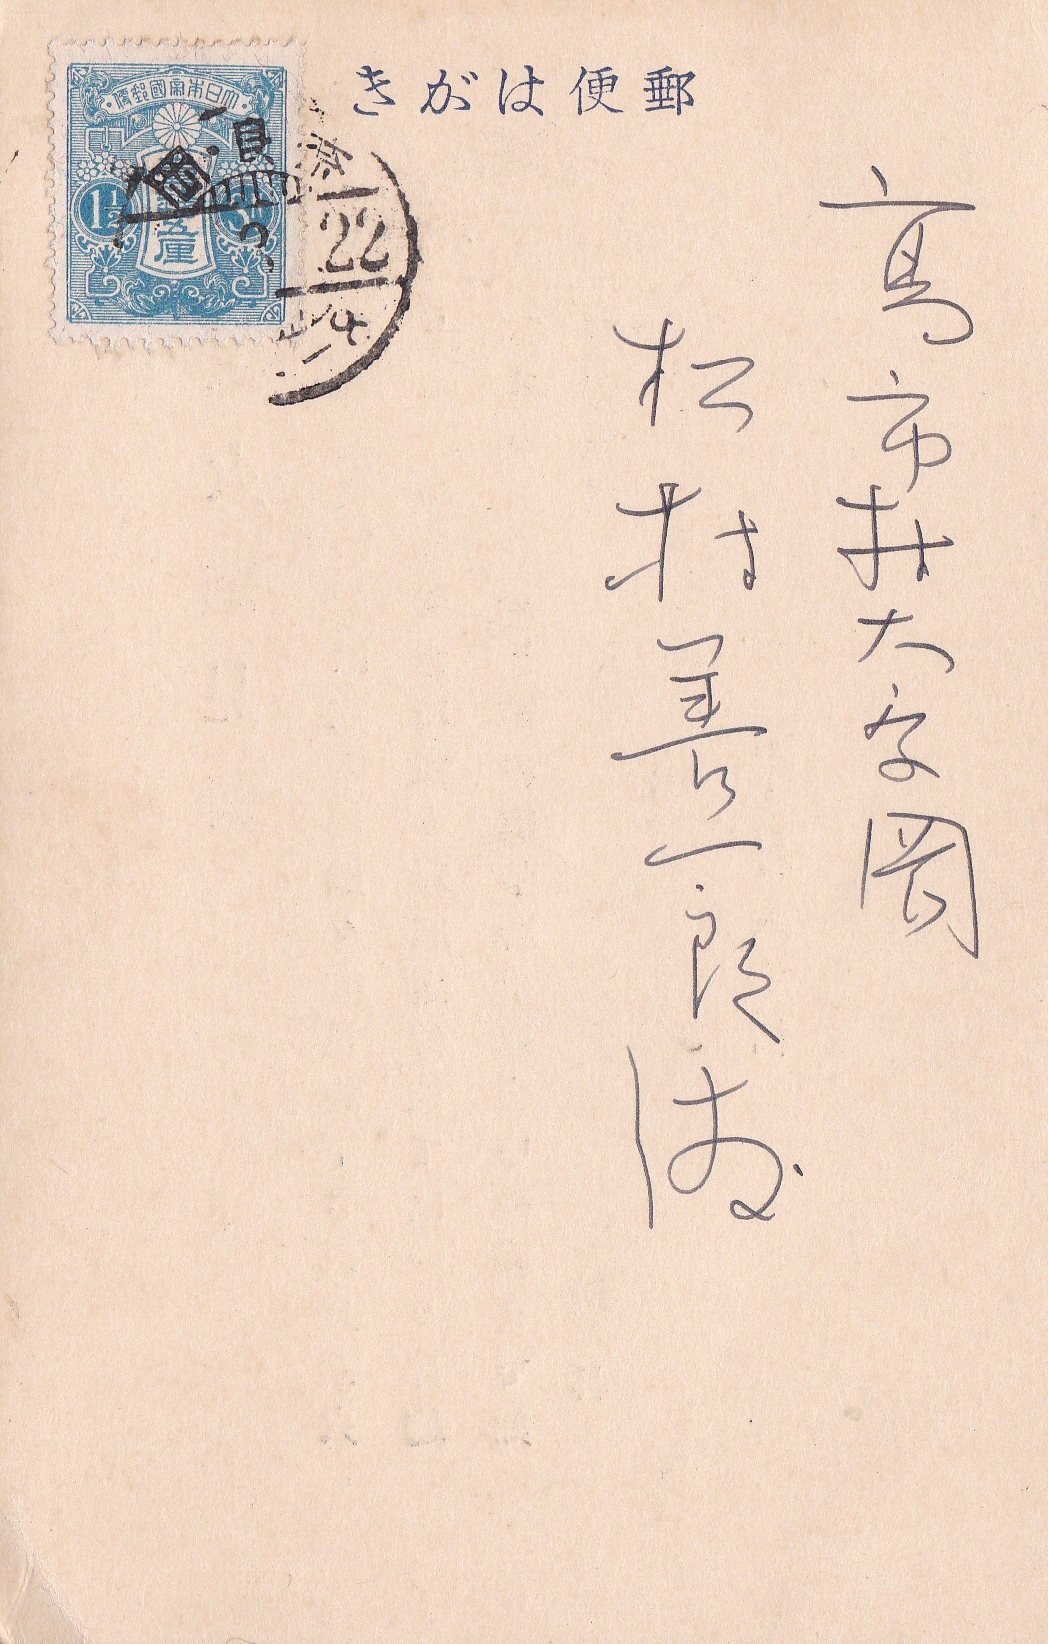 郵便はがき
大日本帝國郵便
1½
五厘
22
高市村大字岡
松村善一郎様